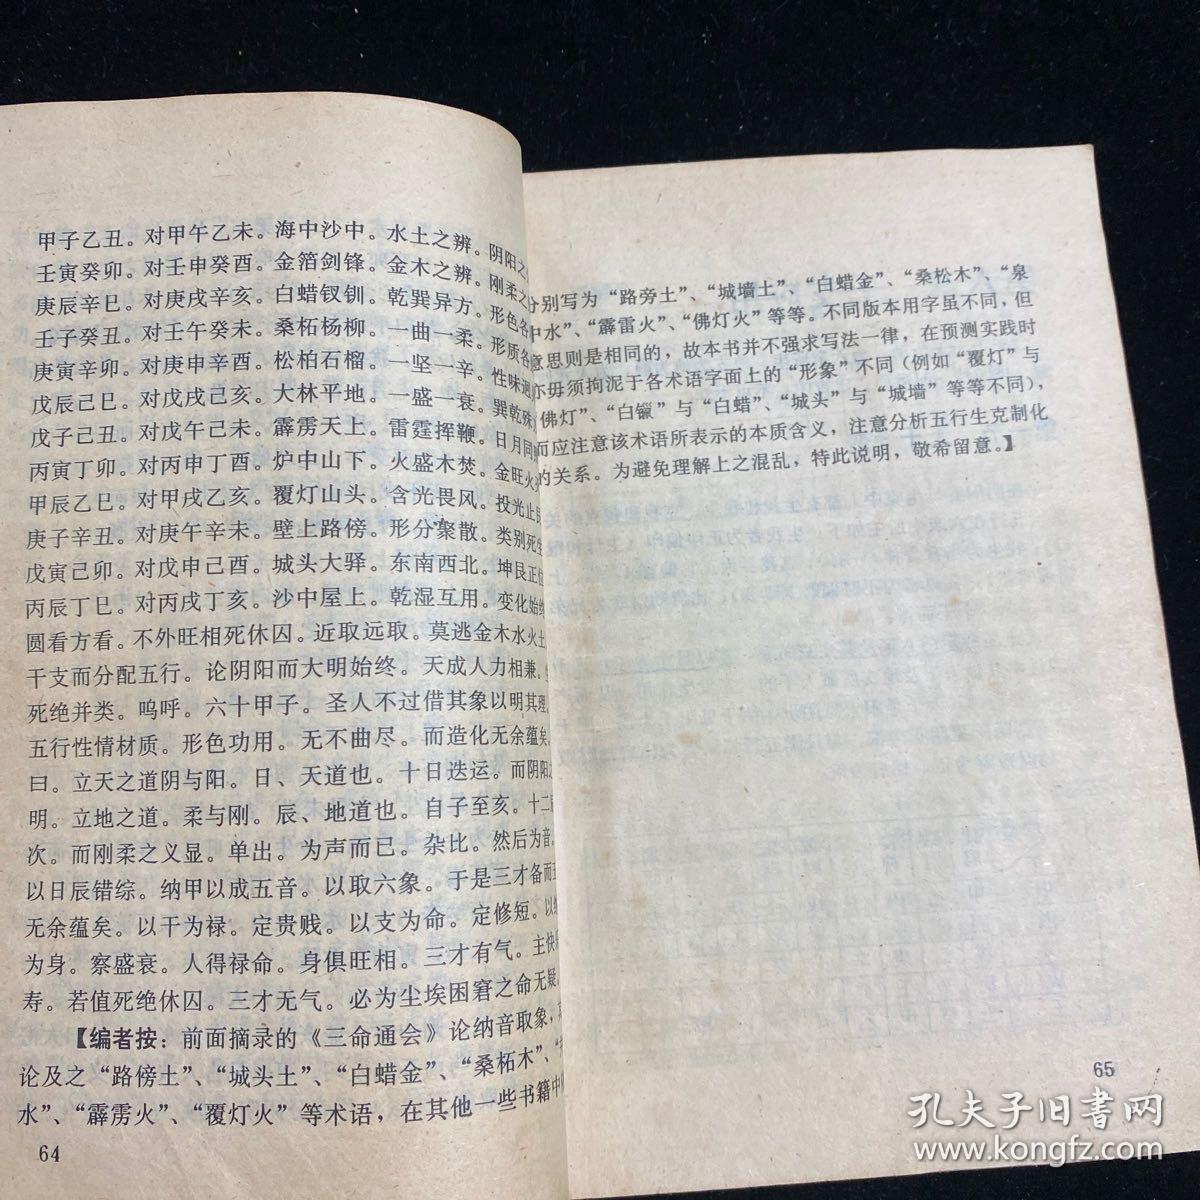 甲子乙丑。对甲午乙未。海中沙中。水土之辨。阴阳之
壬寅癸卯。对壬申癸酉。金箔剑锋。金木之辨。刚柔之
庚辰辛巳。对庚戌辛亥。白蜡钗钏。乾巽异方。形色各
壬子癸丑。对壬午癸未。桑柘杨柳。一曲一柔。形质各
庚寅辛卯。对庚申辛酉。松柏石榴。一坚一辛。性味迥
戊辰己巳。对戊戌己亥。大林平地。一盛一衰。巽乾殊
戊子己丑。对戊午己未。霹雳天上。雷霆挥鞭。日月同
丙寅丁卯。对丙申丁酉。炉中山下。火盛木焚。金旺火
甲辰乙巳。对甲戌乙亥。覆灯山头。含光畏风。投光止
庚子辛丑。对庚午辛未。壁上路傍。形分聚散。类别死生
戊寅己卯。对戊申己酉。城头大驿。东南西北。坤艮正位
丙辰丁巳。对丙戌丁亥。沙中屋上。乾湿互用。变化始终
圆看方看。不外旺相死休囚。近取远取。莫逃金木水火土
干支而分配五行。论阴阳而大明始终。天成人力相兼。
死绝并类。呜呼。六十甲子。圣人不过借其象以明其理。
五行性情材质。形色功用。无不曲尽。而造化无余蕴矣。
曰。立天之道阴与阳。日、天道也。十日迭运。而阴阳之
明。立地之道。柔与刚。辰、地道也。自子至亥。十二
次。而刚柔之义显。单出。为声而已。杂比。然后为音。
以日辰错综。纳甲以成五音。以取六象。于是三才备而
无余蕴矣。以干为禄。定贵贱。以支为命。定修短。以
为身。察盛衰。人得禄命。身俱旺相。三才有气。主快
寿。若值死绝休囚。三才无气。必为尘埃困窘之命无疑
【编者按：前面摘录的《三命通会》论纳音取象，
论及之“路傍土”、“城头土”、“白蜡金”、“桑柘木”、“
水”、“霹雳火”、“覆灯火”等术语，在其他一些书籍中
64
分别写为“路旁土”、“城墙土”、“白蜡金”、“桑松木”、“泉
中水”、“霹雷火”、“佛灯火”等等。不同版本用字虽不同，但
意思则是相同的，故本书并不强求写法一律，在预测实践时
亦毋须拘泥于各术语字面上的“形象”不同（例如“覆灯”与
“佛灯”、“白镴”与“白蜡”、“城头”与“城墙”等等不同），
而应注意该术语所表示的本质含义，注意分析五行生克制化
的关系。为避免理解上之混乱，特此说明，敬希留意。】
65
孔夫子旧书网
www.kongfz.com